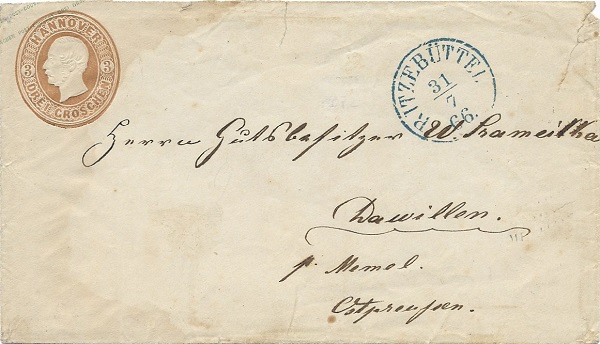 HANNOVER
3 3
DREI GROSCHEN
RITZEBÜTTEL
31
7
66
Herrn Gutsbesitzer W. Krameitka
Dawillen.
p. Memel.
Ostpreußen.